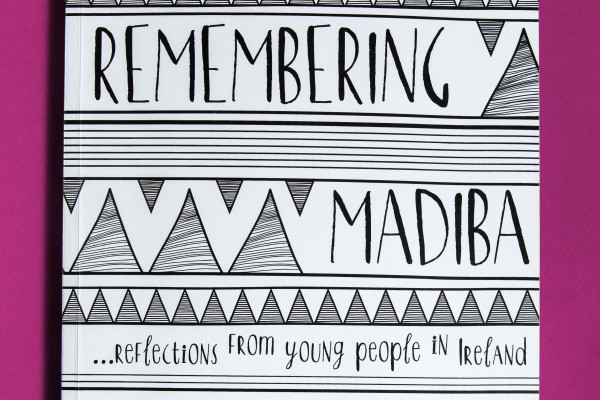 REMEMBERING
MADIBA
...reflections from young people in Ireland